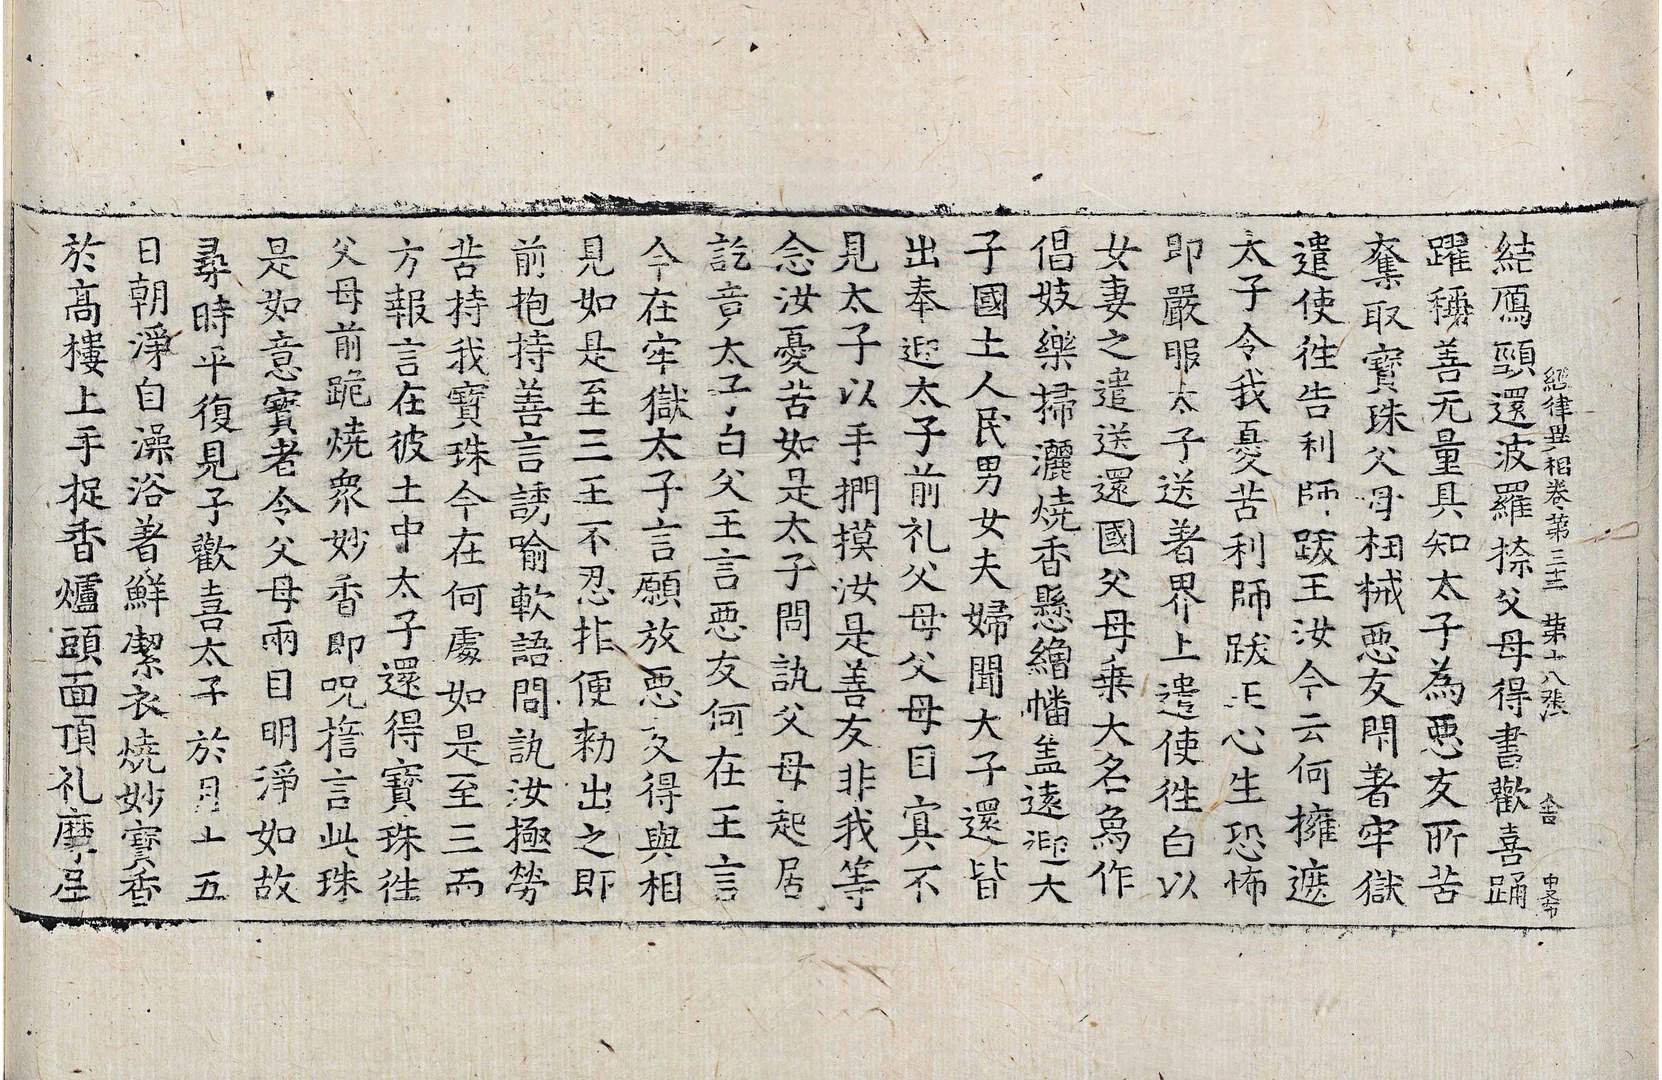 經律異相卷第三十二 第十八張 舎 中又帀
結鴈頸還波羅㮈父母得書歡喜踊
躍稱善无量具知太子為惡友所苦
奪取寶珠父母杻械惡友閇著牢獄
遣使徃告利師跋王汝今云何擁遮
太子令我憂苦利師跋王心生恐怖
即嚴服太子送著界上遣使徃白以
女妻之遣送還國父母乗大名為作
倡妓樂掃灑燒香懸繒幡盖遠迎大
子國土人民男女夫婦聞大子還皆
出奉迎太子前礼父母父母目冥不
見太子以手捫摸汝是善友非我等
念汝憂苦如是太子問訊父母起居
訖竟太子白父王言惡友何在王言
今在牢獄太子言願放惡友得與相
見如是至三王不忍拒便勑出之即
前抱持善言誘喻軟語問訊汝極勞
苦持我寶珠今在何處如是至三而
方報言在彼土中太子還得寶珠徃
父母前跪燒衆妙香即呪誓言此珠
是如意寶者令父母兩目明淨如故
尋時平復見子歡喜太子於月十五
日朝淨自澡浴著鮮潔衣燒妙寶香
於高樓上手捉香爐頭面頂礼摩尼